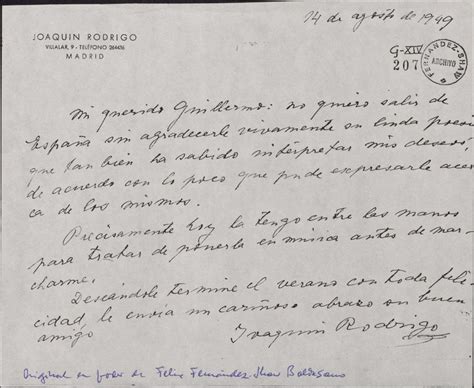 14 de agosto de 1949
JOAQUIN RODRIGO
VILLALAR, 9 - TELÉFONO 264476
MADRID
G-XIV
207
FERNANDEZ-SHAW
ARCHIVO
Mi querido Guillermo: no quiero salir de
España sin agradecerle vivamente su linda poesía
que tan bien ha sabido intérpretar mis deseos,
de acuerdo con lo poco que pude expresarle acer-
ca de los mismos.
Precisamente hoy la tengo entre las manos
para tratar de ponerla en música antes de mar-
charme.
Deseándole termine el verano con toda feli-
cidad, le envia un cariñoso abrazo su buen
amigo
Joaquin Rodrigo
Original en poder de Felix Fernández-Shaw Baldasano